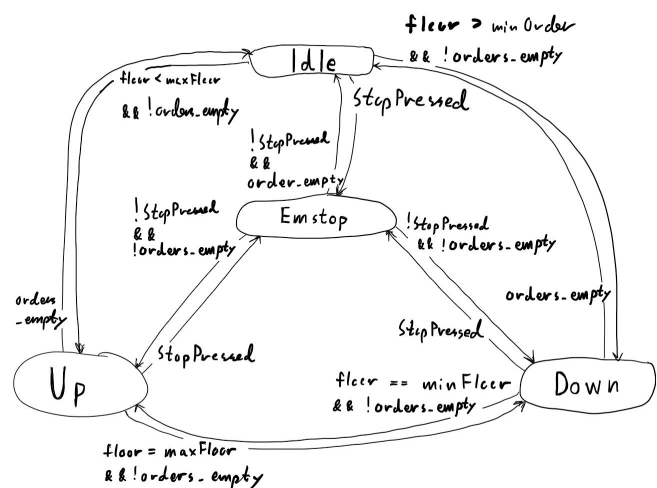 floor > minOrder
&& !orders_empty
Idle
floor < maxFloor
&& !orders_empty
StopPressed
!StopPressed
&&
order_empty
!StopPressed
&&
!orders_empty
Emstop
!StopPressed
&& !orders_empty
orders
_empty
orders_empty
StopPressed
StopPressed
Up
floor == minFloor
&& !orders_empty
Down
floor = maxFloor
&& !orders_empty